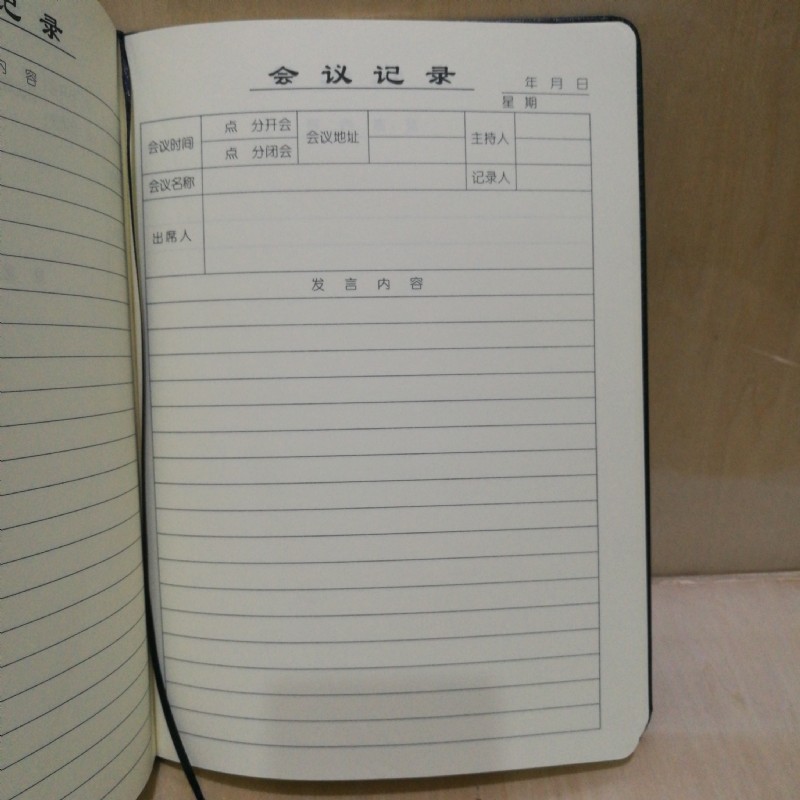 记录
内容
会议记录
年 月 日
星 期
会议时间
点 分开会
点 分闭会
会议地址
主持人
会议名称
记录人
出席人
发言内容